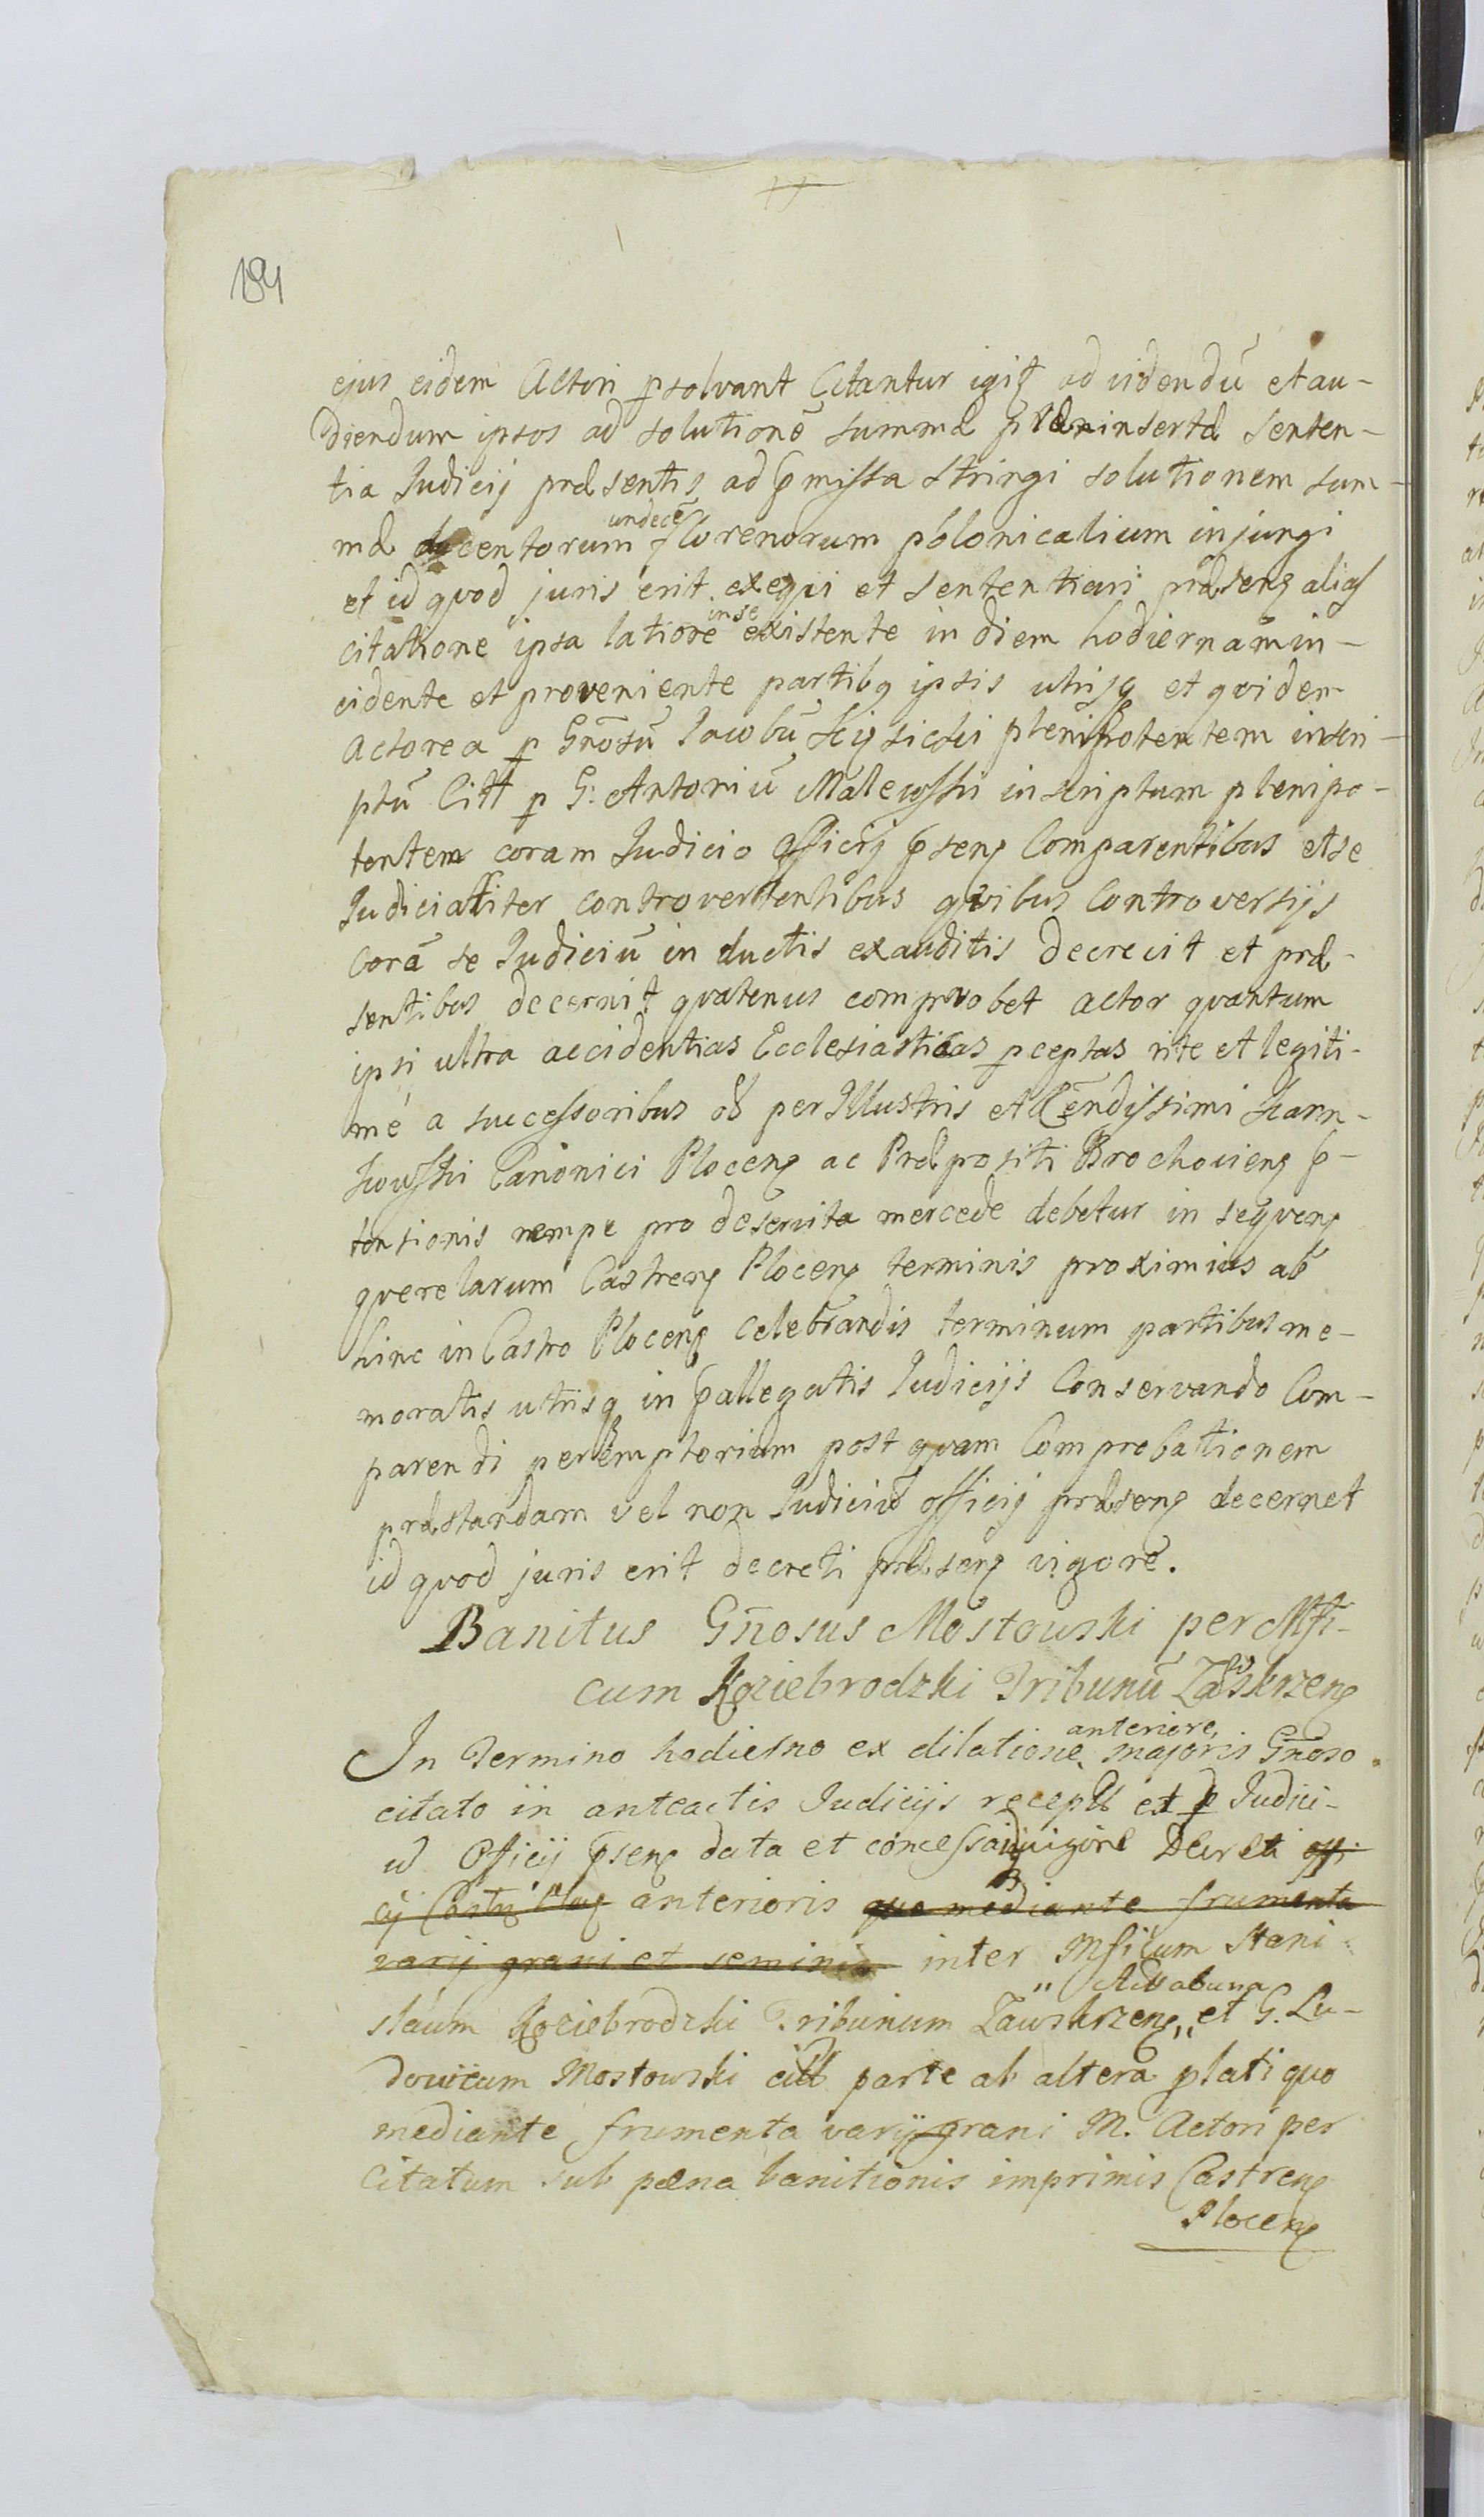 184
ejus eidem Actori psolvant Citantur igit ad videndū et au-
diendum ipsos ad solutionē summæ præinsertæ senten-
tia Judicij præsentis ad pmissa stringi solutionem sum-
mæ ducentorum undecē florenorum polonicalium injungi
et id quod juris erit exequi et sententiari præsenq alias
citatione ipsa latiore in se existente in diem hodiernam in-
cidente et proveniente partibq ipsis utrisq et quidem
Actorea p Gnōsū Jacobū plenipotentem inscri-
ptū Citt p G: Antoniū Malewski inscriptum plenipo-
tentem coram Judicio Officij psenq Comparentibus et se
Judicialiter controvertentibus quibus Controversijs
Corā se Judiciū in ductis exauditis Decrevit et præ-
sentibus decernit quatenus comprobet actor quantum
ipsi ultra accidentias Ecclesiasticas pceptas rite et legiti-
mé a successoribus ol perIllustris et Rēndissimi Karn-
kowski Canonici Plocenq ac Præpositi Brochovienq p-
tensionis nempe pro deservita mercede debetur in sequenq
querelarum Castrenq Plocenq terminis proximius ab
hinc in Castro Plocenq celebrandis terminum partibus me-
moratis utrisq in pallegatis Judicijs Conservando Com-
parendi peremptorium post quam Comprobationem
præstandam vel non Judiciū officij præsenq decernet
id quod juris erit decreti præsenq vigore.
Banitus Gn̄osus Mostowski per Mfi-
cum Koziebrodzki Tribunū Zawskrzenq
In Termino hodierno ex dilatione anteriore, majoris Gnoso
citato in anteactis Judicijs et p Judici-
ū Officij psenq data et concessa vigore Decreti offi-
cij anterioris quo mediante frumenta
varij grani et seminis inter Mficum Stani-
slaum Koziebrodzki Tribunum Zawskrzenq,, et G. Lu-
dovicum Mostowski citt parte ab altera plati quo
mediante frumenta varij grani M. Actori per
Citatum sub pæna banitionis imprimis Castrenq
Plocenq